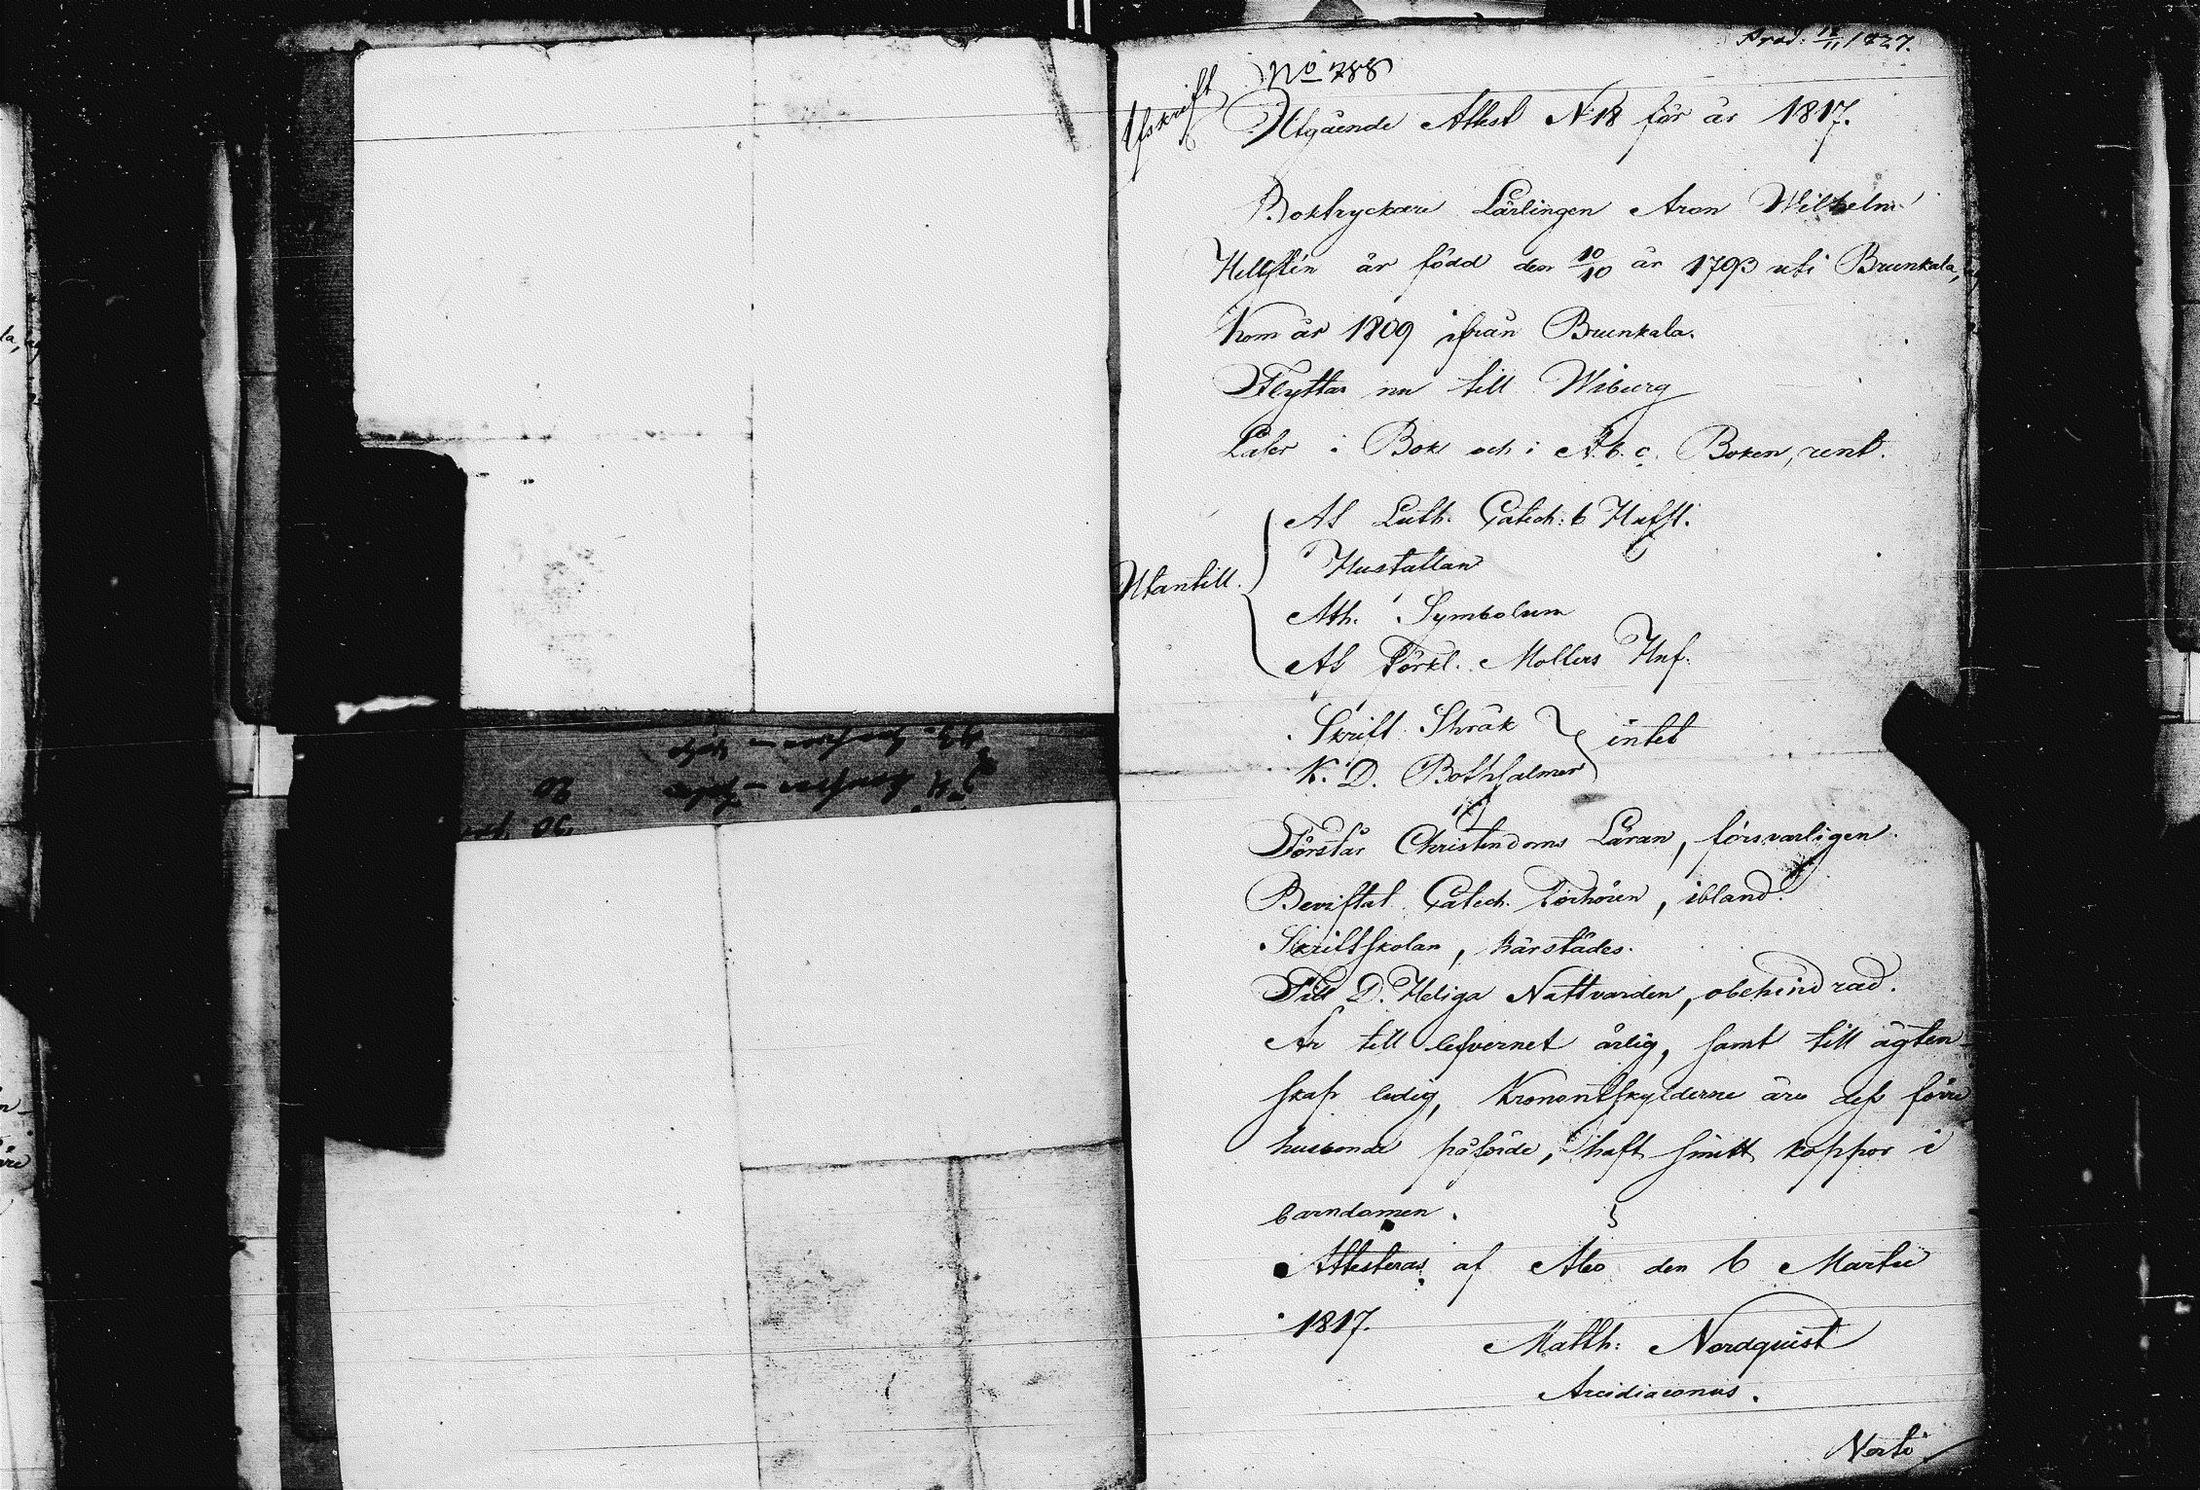 Prod: 12/11 1827.
No 788
Afskrift
Utgående Attest N 18 för år 1817.
Boktryckare Lärlingen Aron Wilhelm
Hellstén är född den 10/10 år 1793 uti Brunkala,
kom år 1809 ifrån Brunkala.
Flyttar nu till Wiburg
Läser i Bok och i A.b.c. Boken, rent.
Utantill.
Af Luth. Catech: 6 Hufst.
Hustaflan
Ath. Symbolum
Af Förkl. Mollers Huf.
Skrift Språk
K. D. Botpsalmer
intet
Förstår Christendoms Läran, försvarligen.
Bevistat Catech. Förhören, ibland.
Skriftskolan, härstädes.
Till D. Heliga Nattvarden, obehindrad.
Är till lefvernet ärlig, samt till ägten-
skap ledig, Kronoutskylderne äro dess förre
husbonde påförde, haft smitt koppor i
barndomen.
Attesteras af Åbo den 6 Martii
1817.
Matth: Nordquist
Arcidiaconus.
Verte